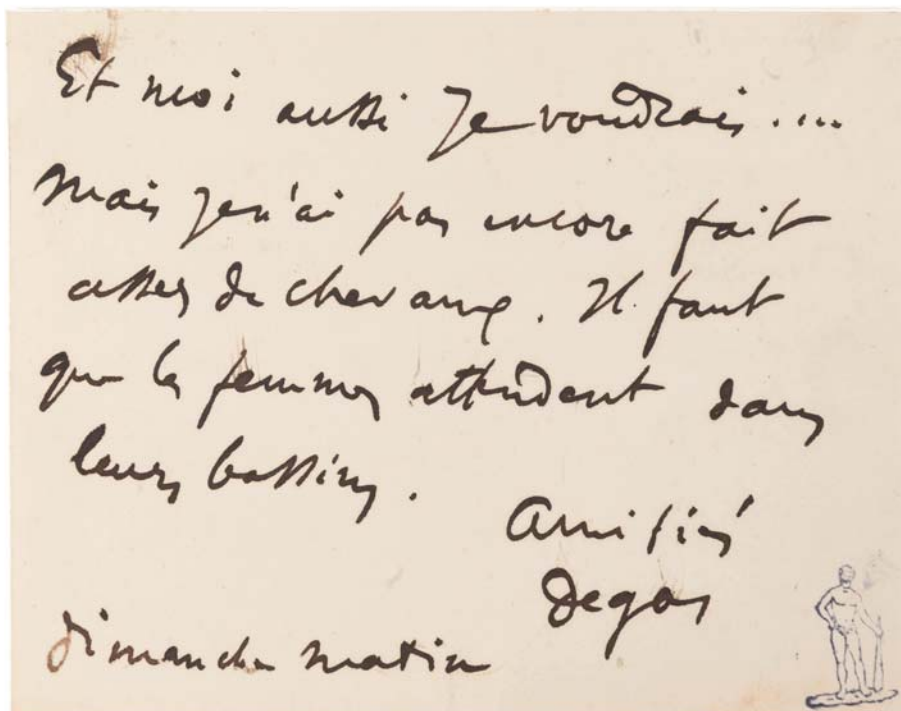 Et moi aussi je voudrais....
Mais je n'ai pas encore fait
assez de chevaux. Il faut
que les femmes attendent dans
leurs bassins.
Amitiés
Degas
Dimanche matin